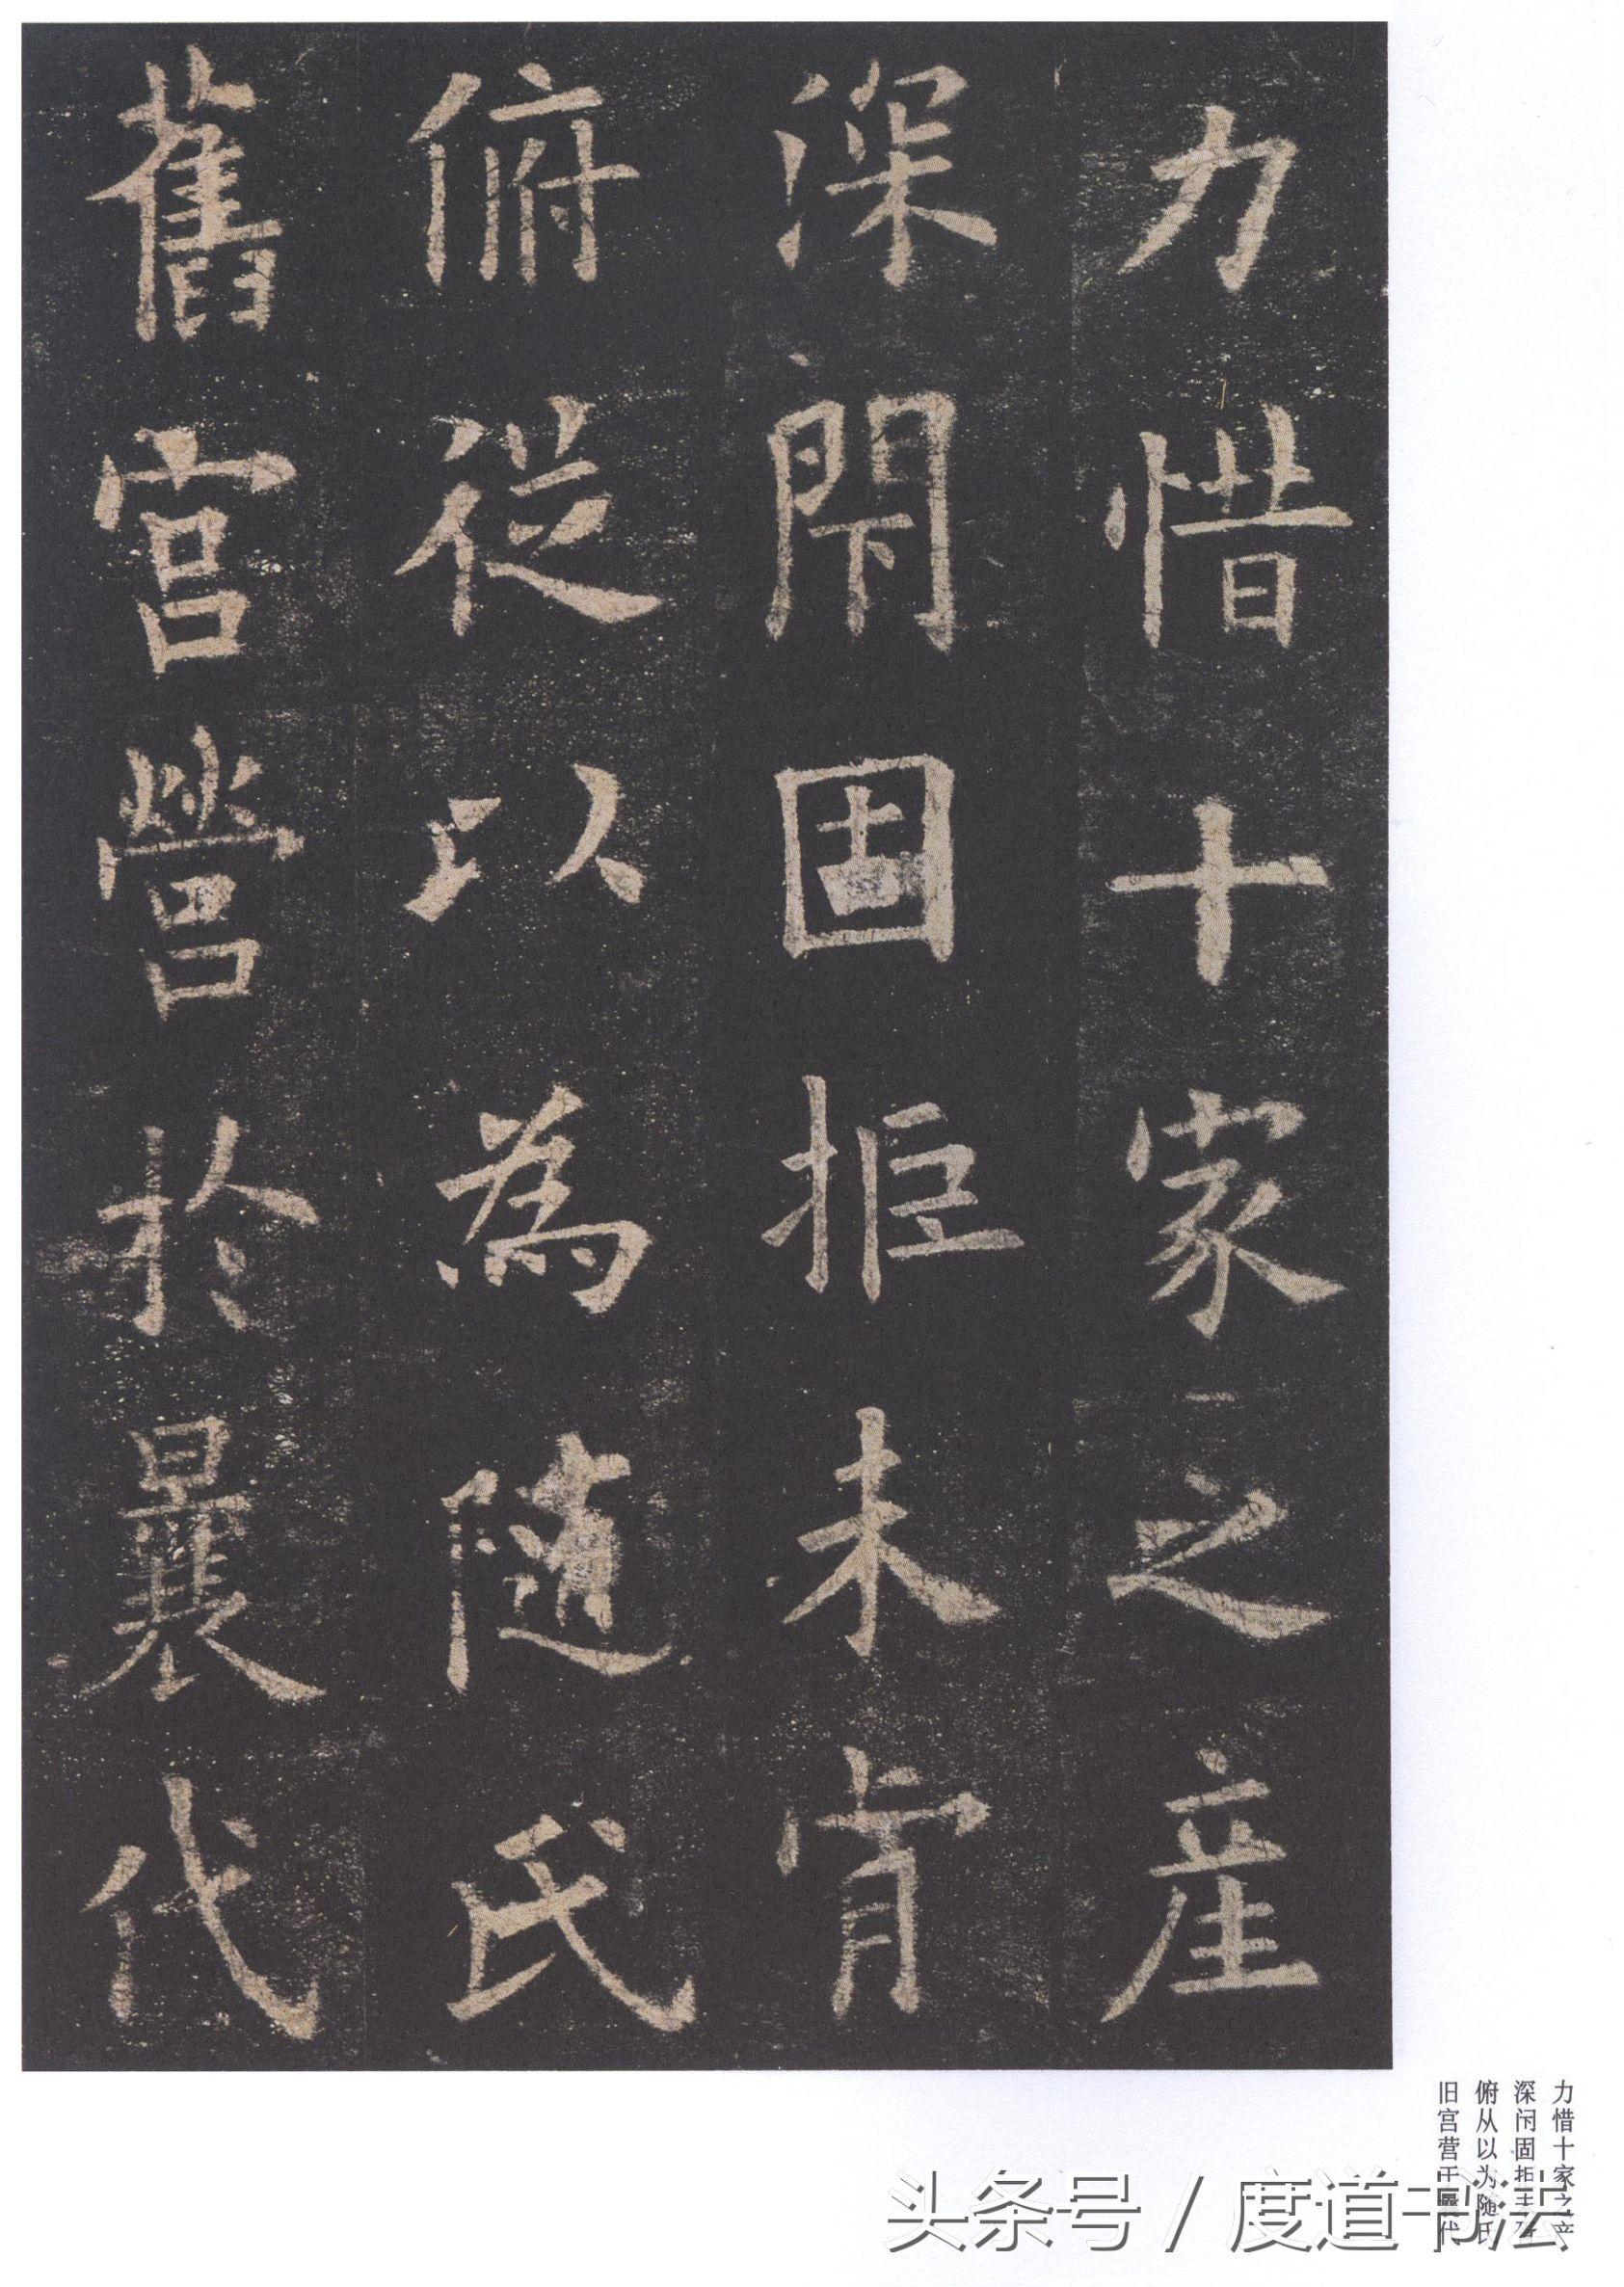 力惜十家之產
深閇固拒未肯
俯從以為隨氏
舊宮營於曩代
力惜十家之产
深闭固拒未肯
俯从以为随氏
旧宫营于曩代
头条号 / 度道书法